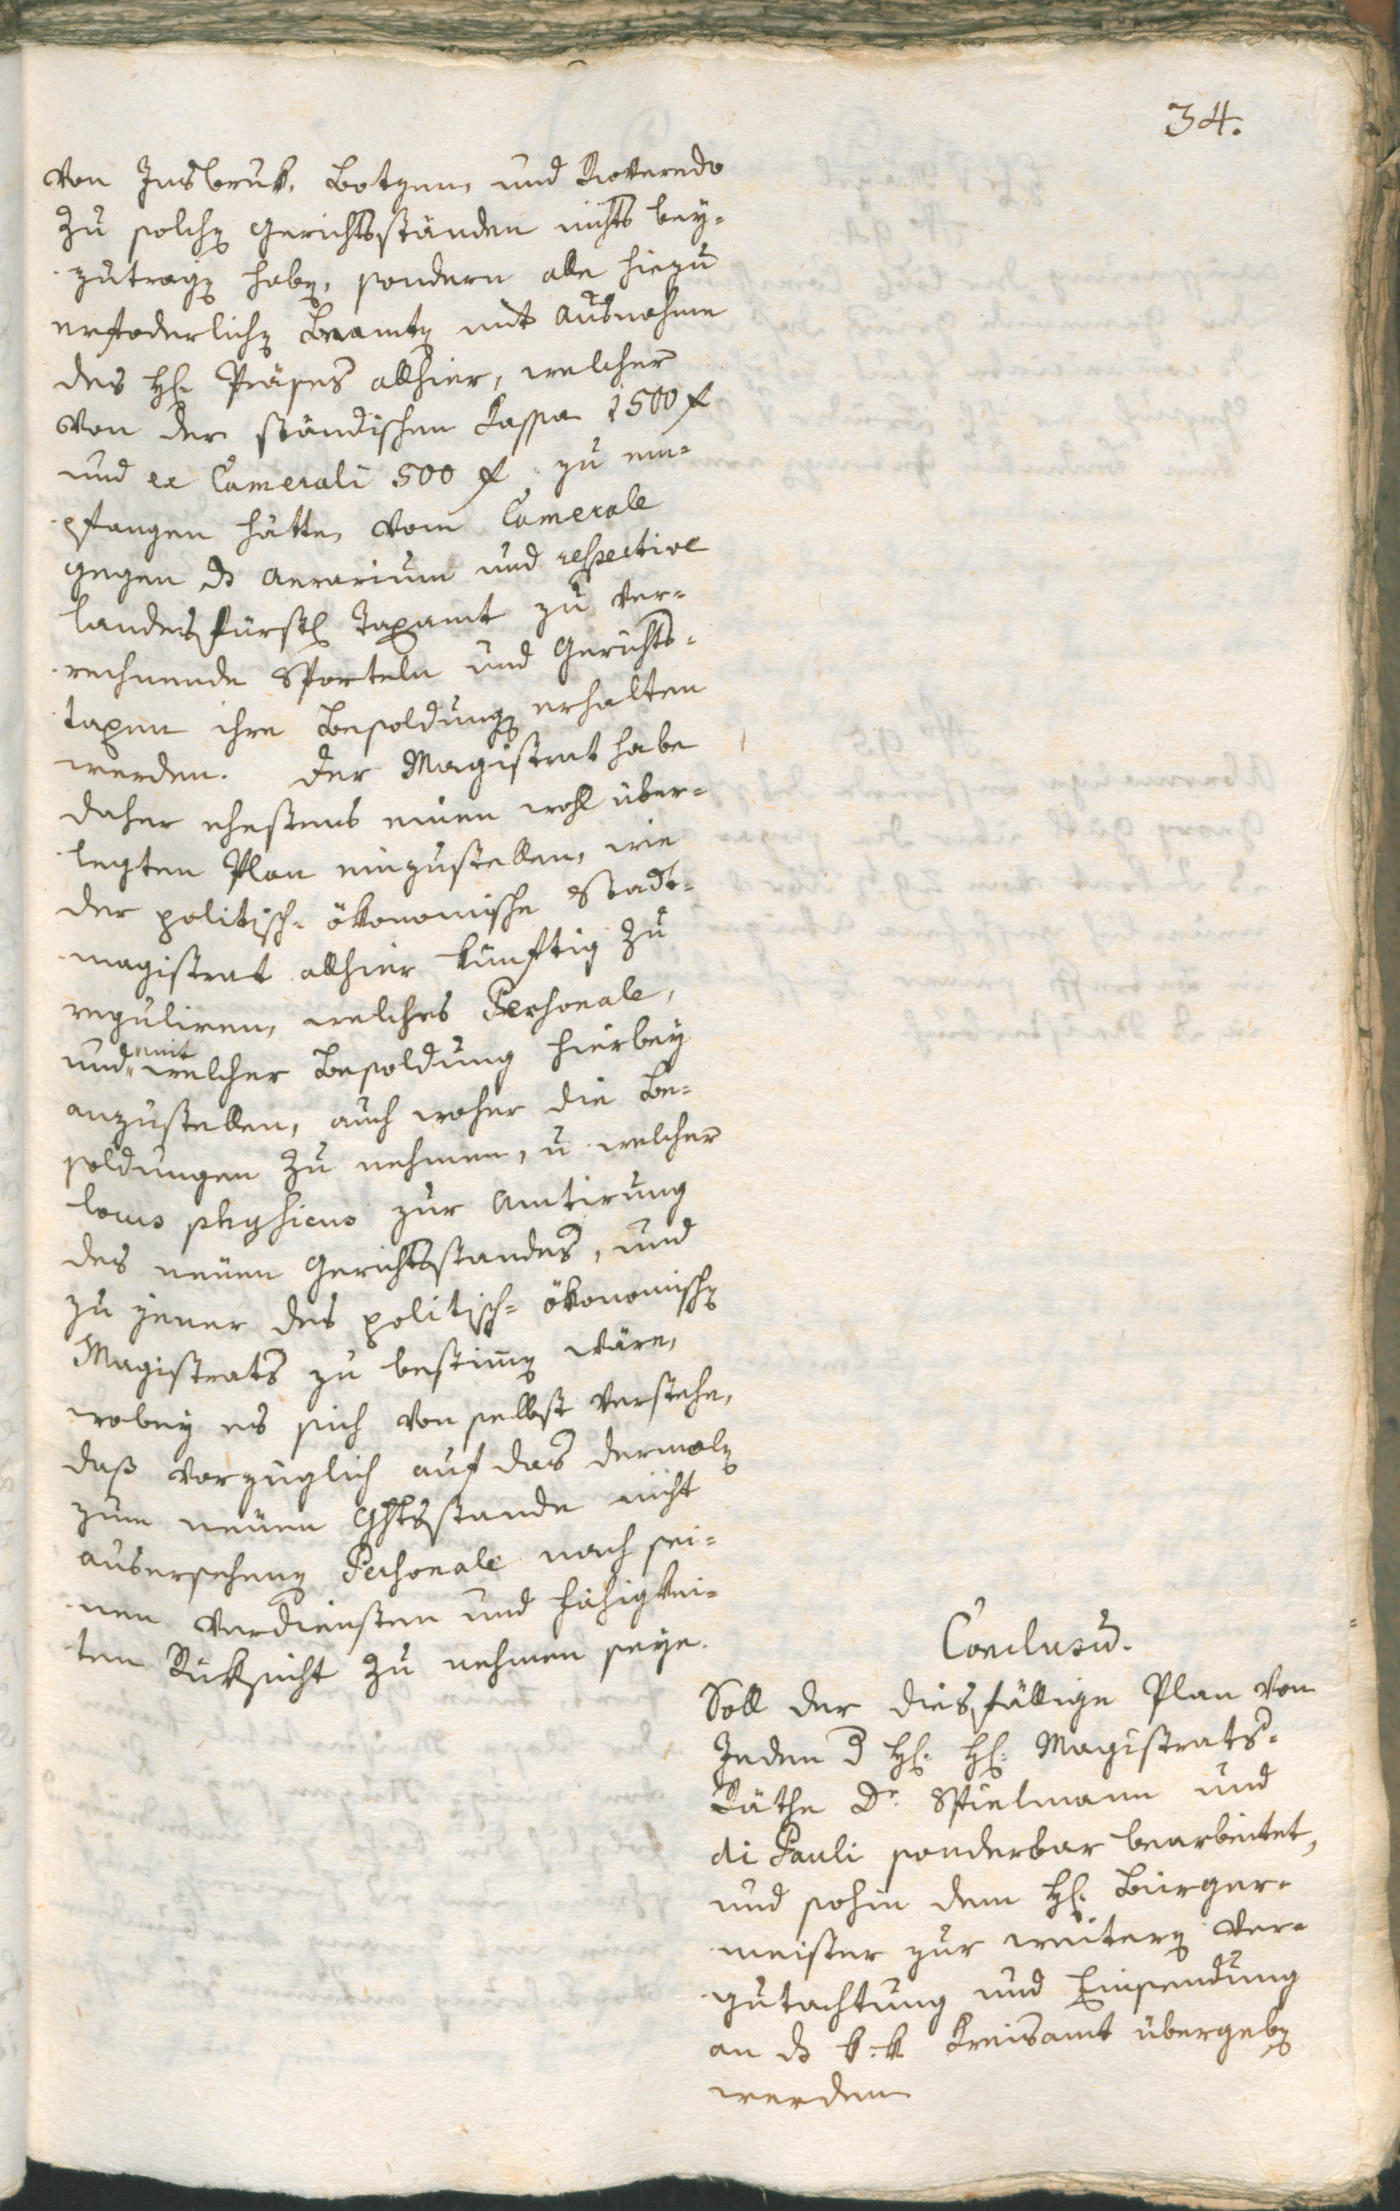 34.
von Insbruk, Botzen, und Roveredo
zu solchen Gerichtsständen nichts bey-
zutragen haben, sondern alle hiezu
erfoderlichen Beamten mit Ausnahme
des H. Präses allhier, welcher
von der ständischen Kassa 1500 f
und ex Camerali 500 f zu em-
pfangen hätte, vom Camerale
gegen das Aerarium und respective
landesfürstl. Taxamt zu ver-
rechnende Sporteln und Gerichts-
taxen ihre Besoldungen erhalten
werden. Der Magistrat habe
daher ehestens einen wohl über-
legten Plan einzustellen, wie
der politisch-ökonomische Stadt-
magistrat allhier künftig zu
reguliren, welches Personale,
und mit welcher Besoldung hierbey
anzustellen, auch woher die Be-
soldungen zu nehmen, u welcher
locus physicus zur Amtirung
des neuen Gerichtsstandes, und
zu jener des politisch-ökonomischen
Magistrats zu bestimmen wäre,
wobey es sich von selbst verstehe,
daß vorzüglich auf das dermalen
zum neuen Ghtsstande nicht
ausersehene Personale nach sei-
nen Verdiensten und Fähigkei-
ten Rüksicht zu nehmen seye.
Conclusum.
Soll der diesfällige Plan von
Jedem der H. H. Magistrats-
Räthe Dr. Stielmann und
di Pauli sonderbar bearbeitet,
und sohin dem H. Bürger-
meister zur weitern Ver-
gutachtung und Einsendung
an das k:k Kreisamt übergeben
werden